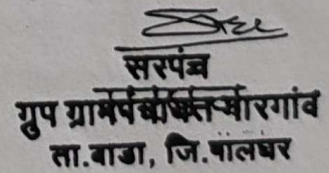 सरपंच
ग्रुप ग्रामपंचायत सारगांव
ता.वाडा, जि.पालघर